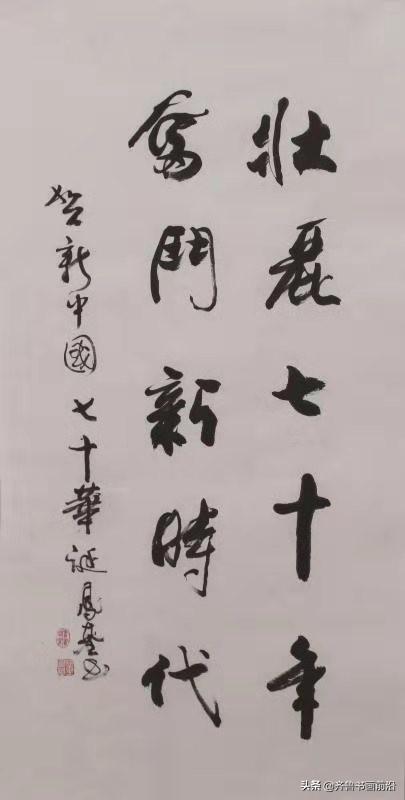 壯麗七十年
奮鬥新時代
賀新中國七十華誕
头条 @齐鲁书画前沿